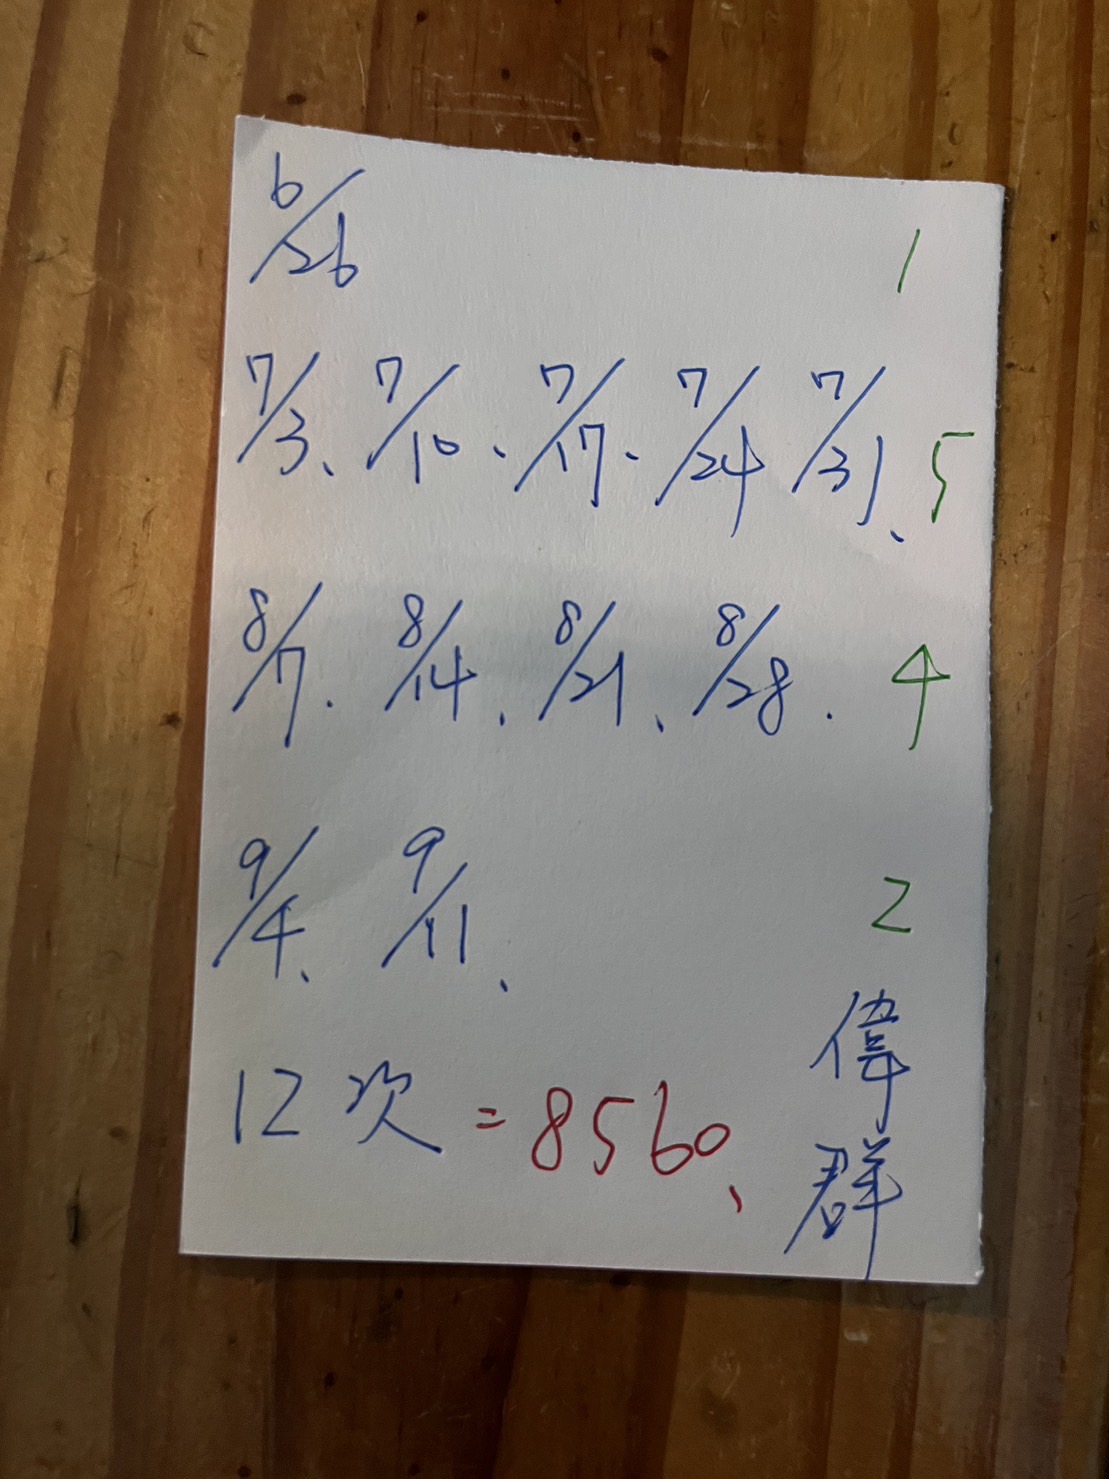 6/26 1
7/3、7/10、7/17、7/24 7/31、5
8/7、8/14、8/21、8/28、4
9/4、9/11、2
12次=8560、
偉群